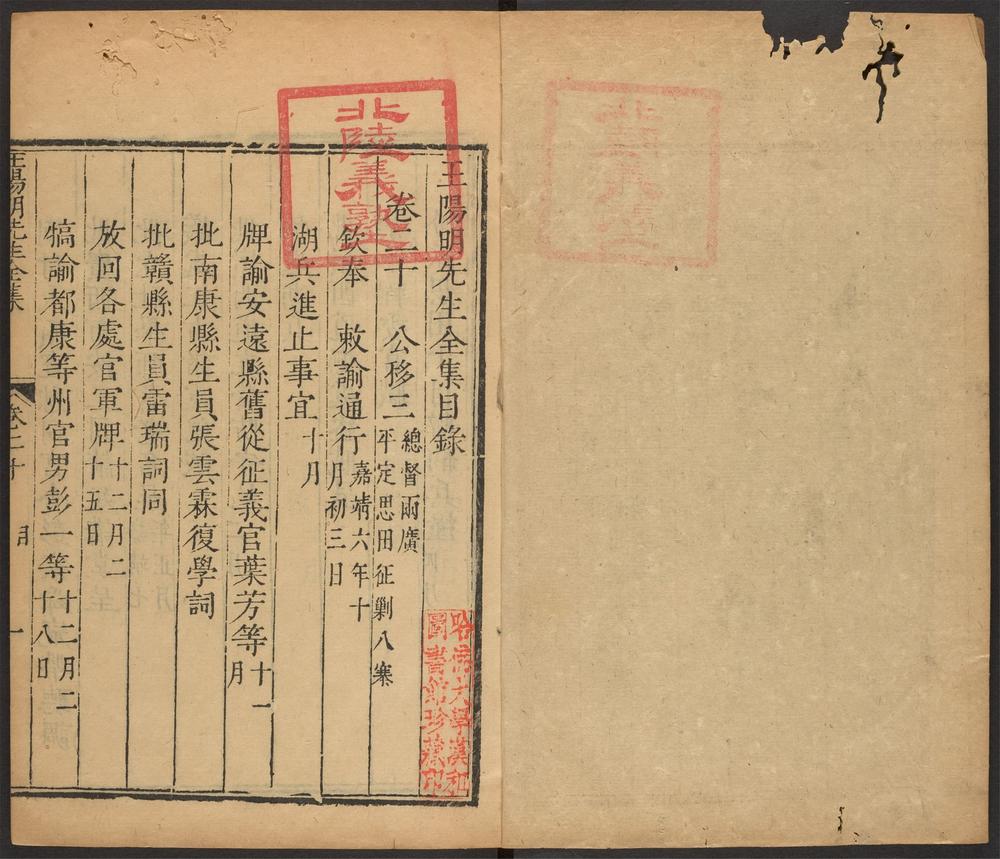 王陽明先生全集目錄
卷二十　公移三總督兩廣平定思田征剿八寨
欽奉　敕諭通行嘉靖六年十月初三日
湖兵進止事宜十月
牌諭安遠縣舊從征義官葉芳等十一月
批南康縣生員張雲霖復學詞
批贛縣生員雷瑞詞同
放回各處官軍牌十二月二十五日
犒諭都康等州官男彭一等十二月二十八日
王陽明先生全集
卷二十
目
一
北陸義塾
哈佛大學漢和圖書館珍藏印